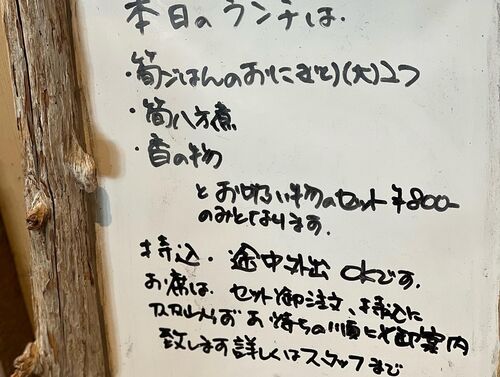 本日のランチは.
・筍ごはんのおにむり(大)2つ
・筍八方煮
・香の物
とお吸い物のセット¥800-
のみとなります.
持込・途中外出okです.
お席は、セット御注文、持込に
お待ちの順に御案内
致します詳しくはスタッフまで